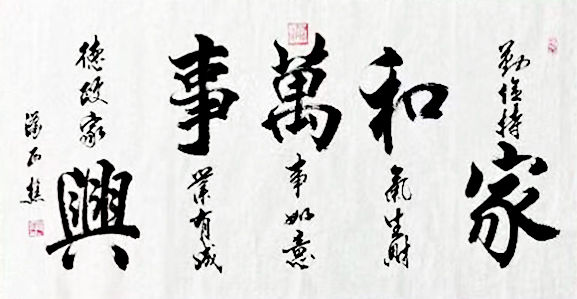 勤儉持家
和氣生財
萬事如意
事業有成
德 家興